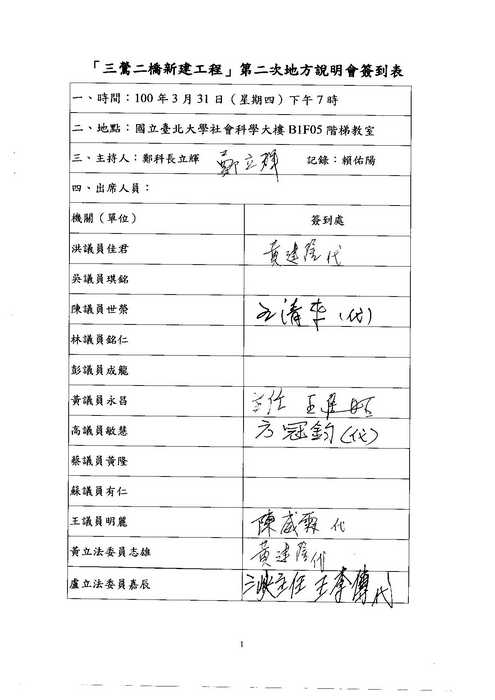 「三鶯二橋新建工程」第二次地方說明會簽到表
一、時間：100年3月31日（星期四）下午7時
二、地點：國立臺北大學社會科學大樓B1F05階梯教室
三、主持人：鄭科長立輝 鄭立輝 記錄：賴佑陽
四、出席人員：
機關（單位） 簽到處
洪議員佳君 黃建隆代
吳議員琪銘
陳議員世榮 清 （代）
林議員銘仁
彭議員成龍
黃議員永昌 主任 王
高議員敏慧 方冠鈞（代）
蔡議員黃隆
蘇議員有仁
王議員明麗 陳威霖 代
黃立法委員志雄 黃建隆代
盧立法委員嘉辰 三峽主任 王李傳代
1